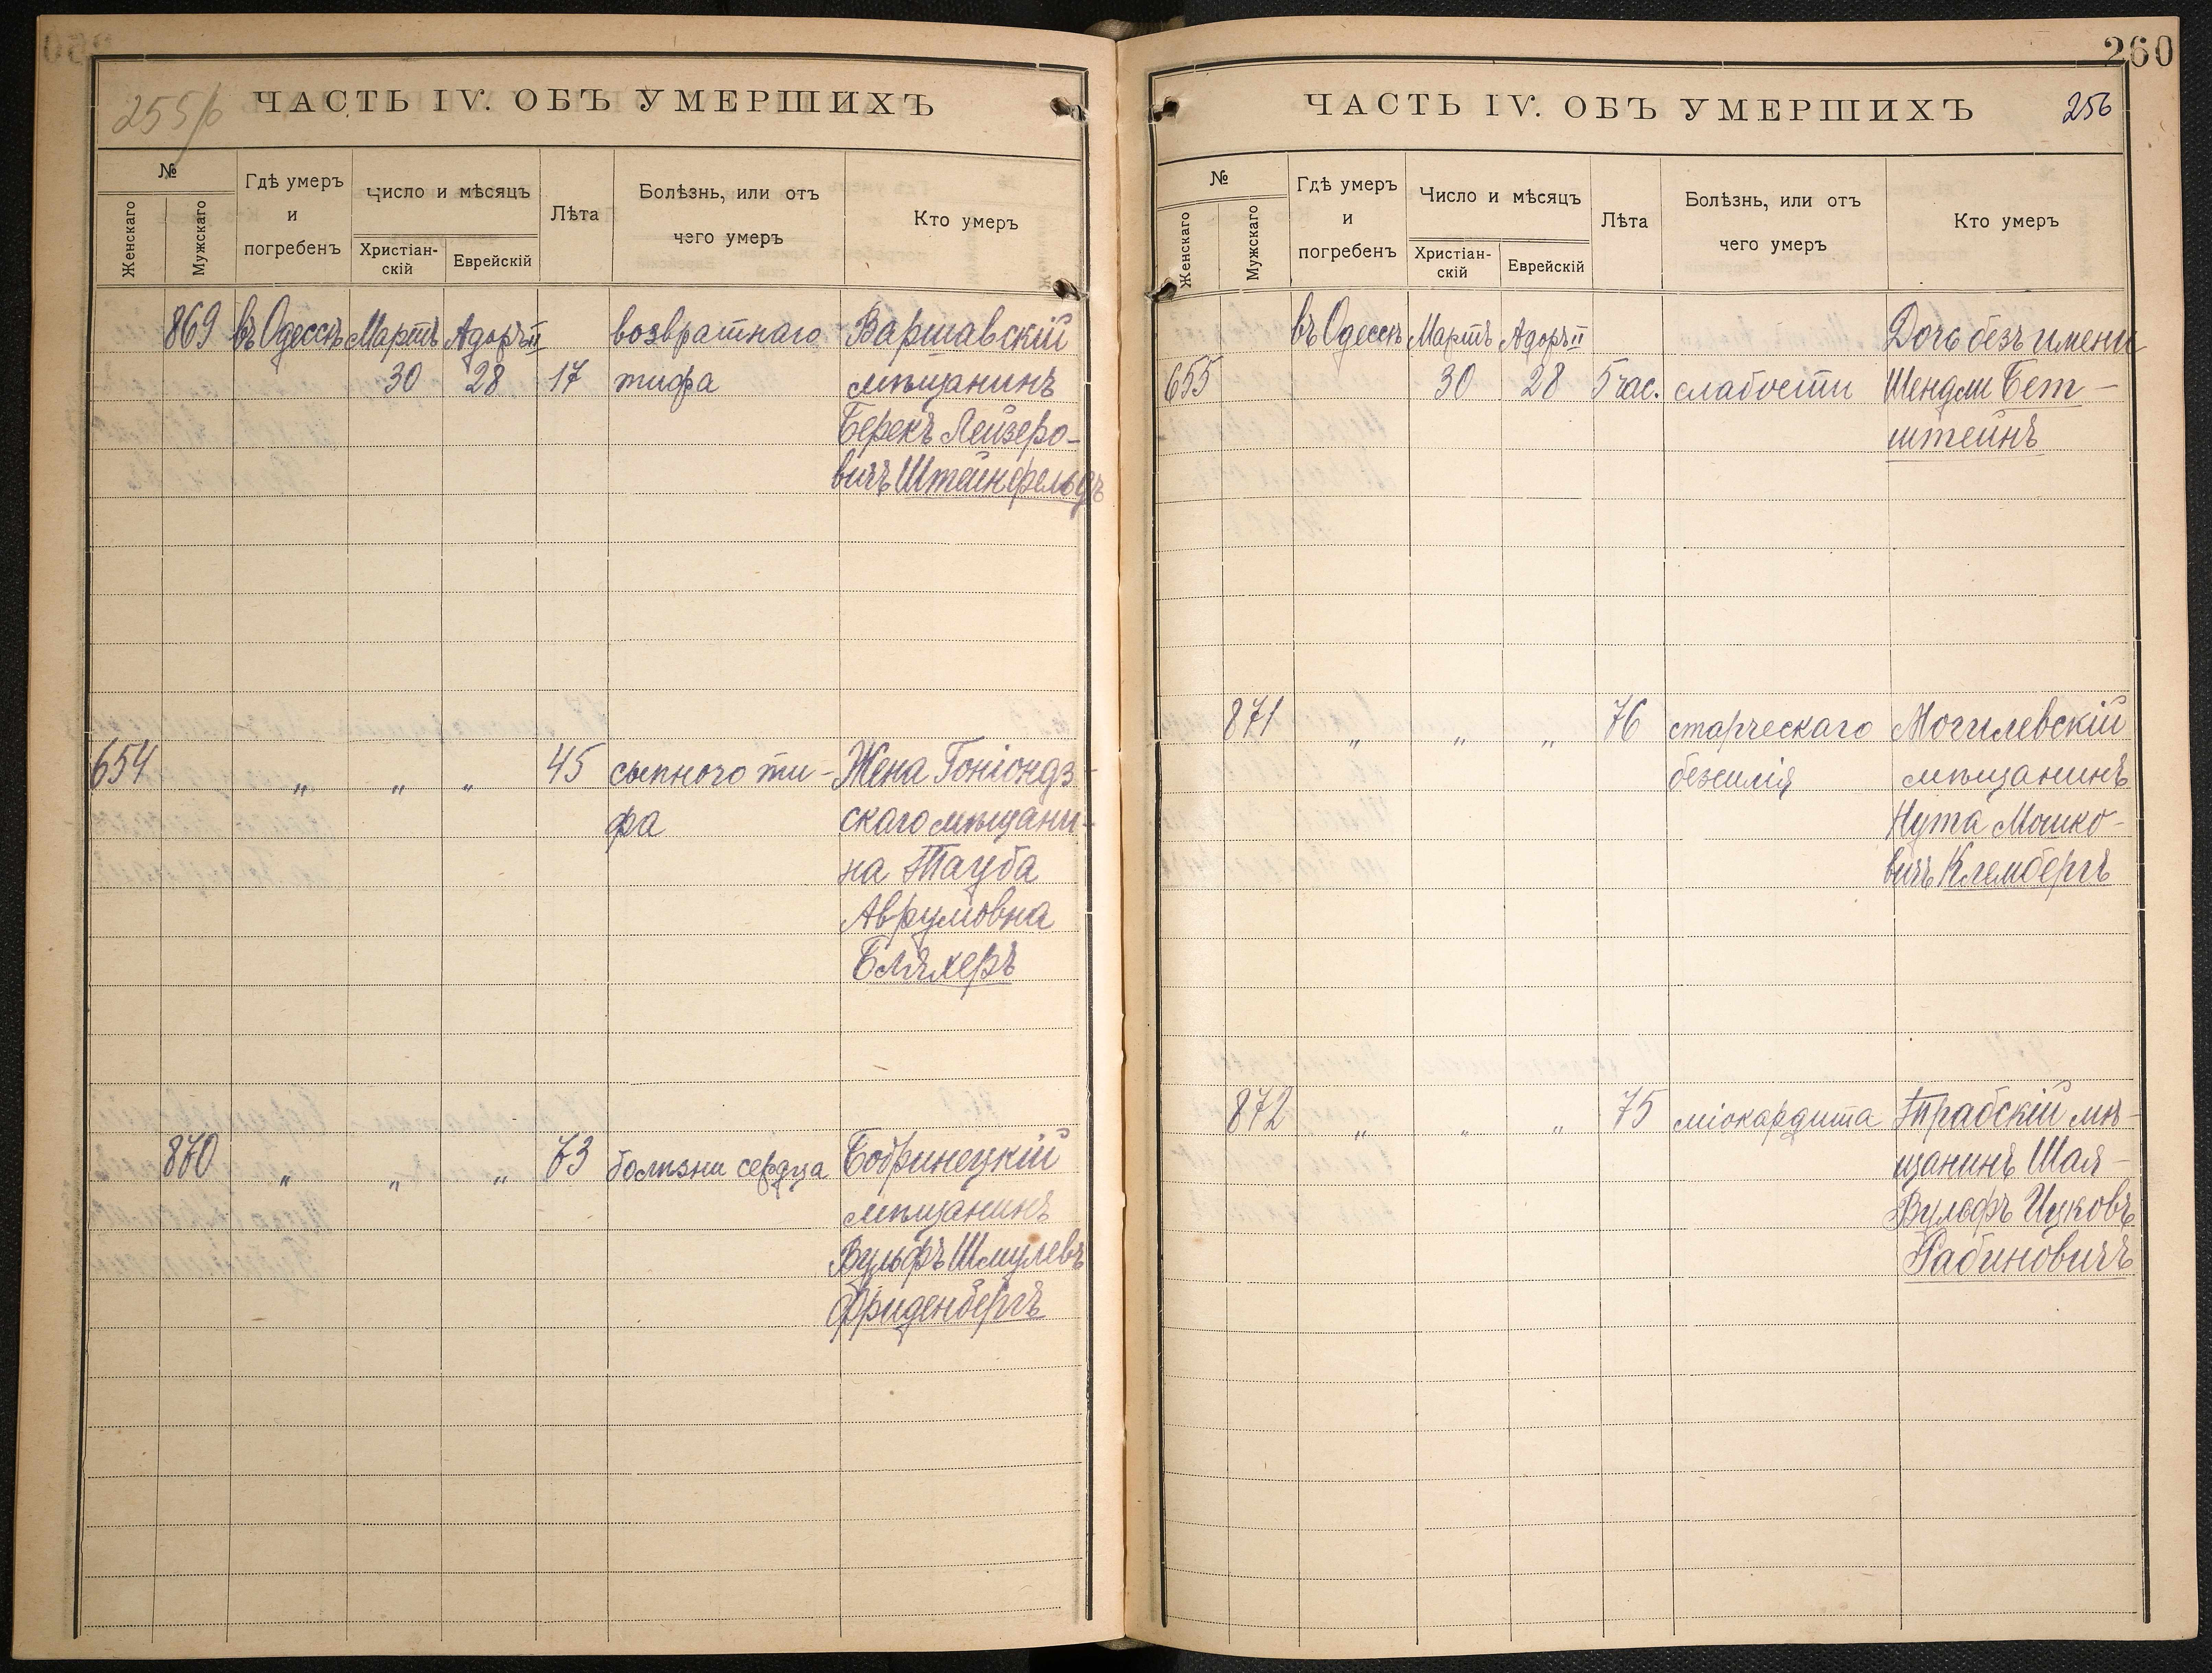 255/б
ЧАСТЬ IV. ОБЪ УМЕРШИХЪ
№
Женскаго
Мужскаго
Гдѣ умеръ
и
погребенъ
Число и мѣсяцъ
Христіан-
скій
Еврейскій
Лѣта
Болѣзнь, или отъ
чего умеръ
Кто умеръ
869 въ Одессѣ Мартъ Адоръ II возвратнаго Варшавскій
30 28 17 тифа мѣщанинъ
Берекъ Лейзеро-
вичъ Штейнфельдъ
654 " " " 45 сыпного ти- Жена Гоніондз-
фа скаго мѣщани-
на Тауба
Аврумовна
Бляхеръ
870 " " " 73 болѣзни сердца Бобринецкій
мѣщанинъ
Вульфъ Шмулевъ
Фриденбергъ
260
ЧАСТЬ IV. ОБЪ УМЕРШИХЪ 256
№
Женскаго
Мужскаго
Гдѣ умеръ
и
погребенъ
Число и мѣсяцъ
Христіан-
скій
Еврейскій
Лѣта
Болѣзнь, или отъ
чего умеръ
Кто умеръ
въ Одессѣ Мартъ Адоръ II Дочь безъ имени
655 30 28 5 час. слабости Шендли Бет-
штейнъ
871 " " " 76 старческаго Могилевскій
безсилія мѣщанинъ
Нута Мошко-
вичъ Клембергъ
872 " " " 75 міокардита Трабскій мѣ-
щанинъ Шая-
Вульфъ Ицковъ
Рабиновичъ